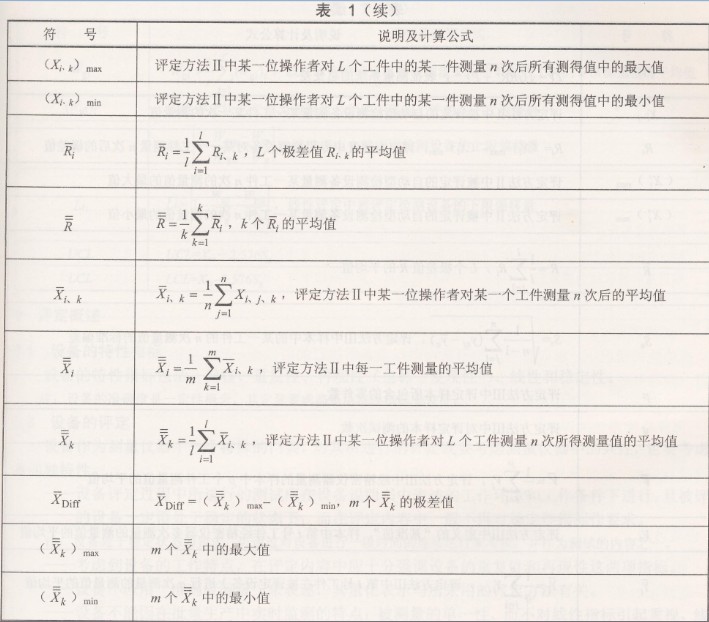 表 1（续）
符 号 说明及计算公式
（X_{i、k}）max 评定方法Ⅱ中某一位操作者对 L 个工件中的某一件测量 n 次后所有测得值中的最大值
（X_{i、k}）min 评定方法Ⅱ中某一位操作者对 L 个工件中的某一件测量 n 次后所有测得值中的最小值
R̄_i R̄_i = \frac{1}{l}\sum_{i=1}^{l} R_{i、k}，L 个极差值 R_{i、k} 的平均值
R̿ R̿ = \frac{1}{k}\sum_{k=1}^{k} R̄_i，k 个 R̄_i 的平均值
X̄_{i、k} X̄_{i、k} = \frac{1}{n}\sum_{j=1}^{n} X_{i、j、k}，评定方法Ⅱ中某一位操作者对某一个工件测量 n 次后的平均值
X̿_i X̿_i = \frac{1}{m}\sum_{k=1}^{m} X̄_{i、k}，评定方法Ⅱ中每一工件测量的平均值
X̿_k X̿_k = \frac{1}{l}\sum_{i=1}^{l} X̄_{i、k}，评定方法Ⅱ中某一位操作者对 L 个工件测量 n 次所得测量值的平均值
X̄_{Diff} X̄_{Diff} =（X̿_k）max－（X̿_k）min，m 个 X̿_k 的极差值
（X̿_k）max m 个 X̿_k 中的最大值
（X̿_k）min m 个 X̿_k 中的最小值